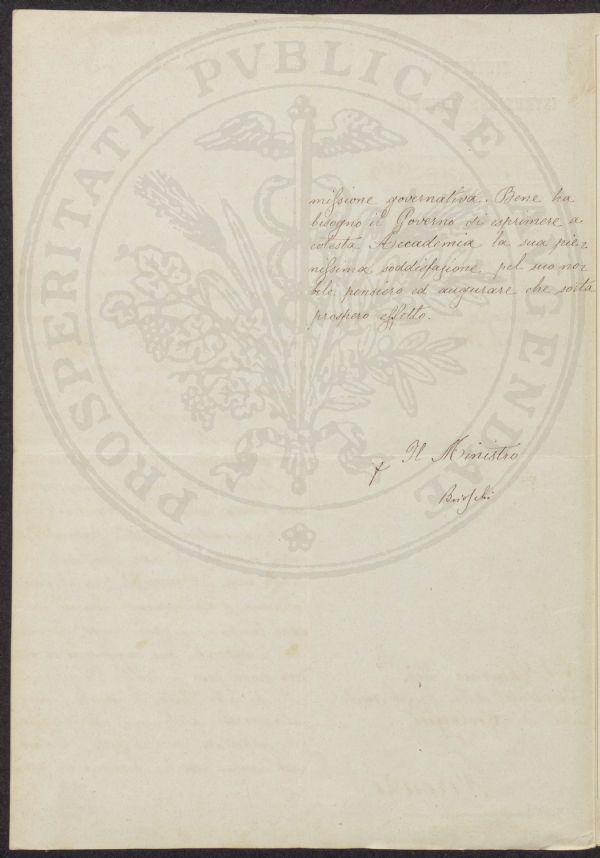 PROSPERITATI PVBLICAE AVGENDAE
missione governativa. Bene ha
bisogno il Governo di esprimere a
cotesta Accademia la sua pie-
nissima soddisfazione pel suo no-
bile pensiero ed augurare che sorta
prospero effetto.
Il Ministro
Brioschi